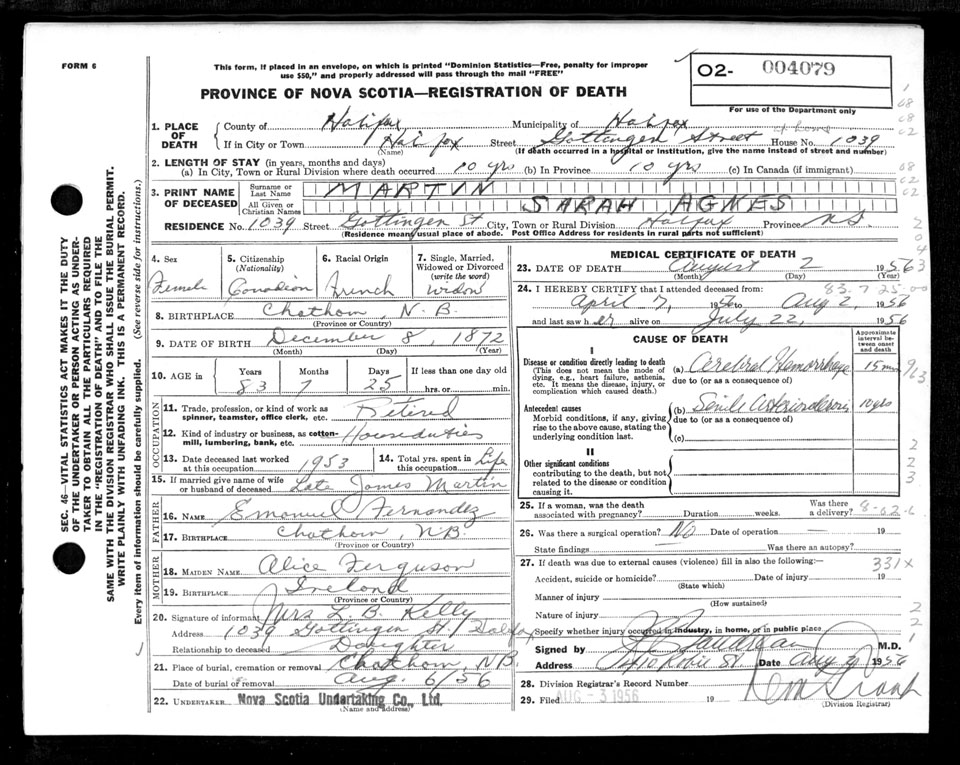 FORM 6
This form, if placed in an envelope, on which is printed "Dominion Statistics—Free, penalty for improper
use $50," and properly addressed will pass through the mail "FREE"
O2- 004079
PROVINCE OF NOVA SCOTIA—REGISTRATION OF DEATH
For use of the Department only
1. PLACE OF DEATH
County of Halifax Municipality of Halifax
If in City or Town Halifax Street Gottingen Street House No. 1039
at home
(Name) (If death occurred in a hospital or institution, give the name instead of street and number)
2. LENGTH OF STAY (in years, months and days)
(a) In City, Town or Rural Division where death occurred 10 yrs (b) In Province 10 yrs (c) In Canada (if immigrant)
3. PRINT NAME OF DECEASED
Surname or Last Name MARTIN
All Given or Christian Names SARAH AGNES
RESIDENCE No. 1039 Street Gottingen St City, Town or Rural Division Halifax Province NS
(Residence means usual place of abode. Post Office Address for residents in rural parts not sufficient)
4. Sex
Female
5. Citizenship (Nationality)
Canadian
6. Racial Origin
French
7. Single, Married, Widowed or Divorced (write the word)
widow
8. BIRTHPLACE Chatham, N.B.
(Province or Country)
9. DATE OF BIRTH December 8, 1872
(Month) (Day) (Year)
10. AGE in Years Months Days If less than one day old
83 7 25 hrs. or min.
OCCUPATION
11. Trade, profession, or kind of work as spinner, teamster, office clerk, etc. Retired
12. Kind of industry or business, as cotton-mill, lumbering, bank, etc. Houseduties
13. Date deceased last worked at this occupation 1953
14. Total yrs. spent in this occupation Life
15. If married give name of wife or husband of deceased Late James Martin
FATHER
16. NAME Emanuel Fernandez
17. BIRTHPLACE Chatham, N.B.
(Province or Country)
MOTHER
18. MAIDEN NAME Alice Ferguson
19. BIRTHPLACE Ireland
(Province or Country)
20. Signature of informant Mrs L. B. Kelly
Address 1039 Gottingen St. Halifax
Relationship to deceased Daughter
21. Place of burial, cremation or removal Chatham, NB.
Date of burial or removal Aug. 6/56
22. UNDERTAKER Nova Scotia Undertaking Co., Ltd.
(Name and address)
MEDICAL CERTIFICATE OF DEATH
23. DATE OF DEATH August 2 1956
(Month) (Day) (Year)
24. I HEREBY CERTIFY that I attended deceased from:
83.7 25-00
April 7, 1956 to Aug 2, 1956
and last saw her alive on July 22, 1956
CAUSE OF DEATH
Approximate interval between onset and death
I
Disease or condition directly leading to death
(This does not mean the mode of dying, e.g., heart failure, asthenia, etc. It means the disease, injury, or complication which caused death.)
(a) Cerebral Hemorrhage 15 min
due to (or as a consequence of)
Antecedent causes
Morbid conditions, if any, giving rise to the above cause, stating the underlying condition last.
(b) Senile Arteriosclerosis 10 yrs
due to (or as a consequence of)
(c)
II
Other significant conditions
contributing to the death, but not related to the disease or condition causing it.
25. If a woman, was the death associated with pregnancy? Duration weeks. Was there a delivery?
26. Was there a surgical operation? No Date of operation 19
State findings Was there an autopsy?
27. If death was due to external causes (violence) fill in also the following: 331X
Accident, suicide or homicide? Date of injury 19
(State which)
Manner of injury
(How sustained)
Nature of injury
Specify whether injury occurred in industry, in home, or in public place
Signed by M.D.
Address Robie St Date Aug 1956
28. Division Registrar's Record Number
29. Filed AUG - 3 1956 19
(Division Registrar)
SEC. 46—VITAL STATISTICS ACT MAKES IT THE DUTY
OF THE UNDERTAKER OR PERSON ACTING AS UNDER-
TAKER TO OBTAIN ALL THE PARTICULARS REQUIRED
IN THE "REGISTRATION OF DEATH" AND TO FILE THE
SAME WITH THE DIVISION REGISTRAR WHO SHALL ISSUE THE BURIAL PERMIT.
WRITE PLAINLY WITH UNFADING INK. THIS IS A PERMANENT RECORD.
Every item of information should be carefully supplied. (See reverse side for instructions.)